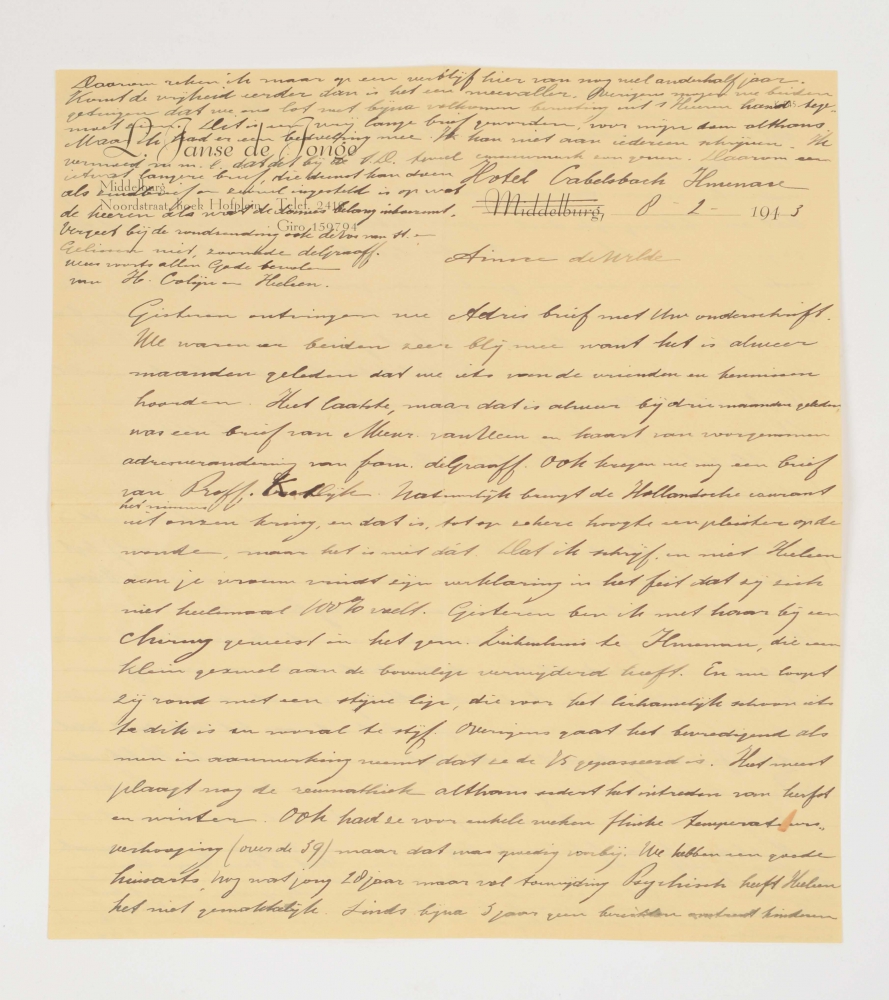 Daarom reken ik maar op een verblijf hier van nog wel anderhalf jaar.
Komt de vrijheid eerder dan is het een meevaller. Overigens mogen we beiden
getuigen dat we ons lot met bijna volkomen berusting uit 's Heeren hand
Dit is een erg lange brief geworden, voor mijn doen althans.
Maar ik had er Ik kan niet aan iedereen schrijven. Ik
vermoed dat dat bij de Daarom een
langere brief, die dienst kan doen
als rondbrief en zooveel ingesteld is op wat
de heeren als wat de dames belang inboezemt.
Vergeet bij de rondzending ook de Vos van St.
Gelissen niet, zoomede de Graaff.
Wees voorts allen Gode bevolen
van H. Colijn en Helena.
L. Janse de Jonge
Middelburg
Noordstraat hoek Hofplein Telef. 241
Giro 159794
Hotel Gabelsbach Ilmenau
Middelburg, 8 - 2 - 1943
Amice de Wilde
Gisteren ontvingen we Adri's brief met Uw onderschrift.
We waren er beiden zeer blij mee want het is alweer
maanden geleden dat we iets van de vrienden en kennissen
hoorden. Het laatste, maar dat is alweer bij drie maanden geleden
was een brief van Mevr. van Veen en kaart van voorgenomen
adresverandering van fam. de Graaff. Ook kregen we nog een brief
van Proff. Natuurlijk brengt de Hollandsche courant
het nieuws
uit onzen kring, en dat is, tot op zekere hoogte een pleister op de
wonde, maar het is niet dát. Dat ik schrijf en niet Helena
aan je vrouw vindt zijn verklaring in het feit dat zij zich
niet heelemaal 100% voelt. Gisteren ben ik met haar bij een
chirurg geweest in het gem. Ziekenhuis te Ilmenau, die een
klein gezwel aan de bovenlip verwijderd heeft. En nu loopt
zij rond met een stijve lip, die voor het lichamelijk schoon iets
te dik is en vooral te stijf. Overigens gaat het bevredigend als
men in aanmerking neemt dat ze de 75 gepasseerd is. Het meest
plaagt nog de reumathiek althans sedert het intreden van herfst
en winter. Ook had ze voor enkele weken flinke temperatuurs-
verhooging (over de 39) maar dat was spoedig voorbij. We hebben een goede
huisarts, nog wat jong 28 jaar maar vol toewijding. Psychisch heeft Helena
het niet gemakkelijk. Sinds bijna 3 jaar geen berichten omtrent kinderen